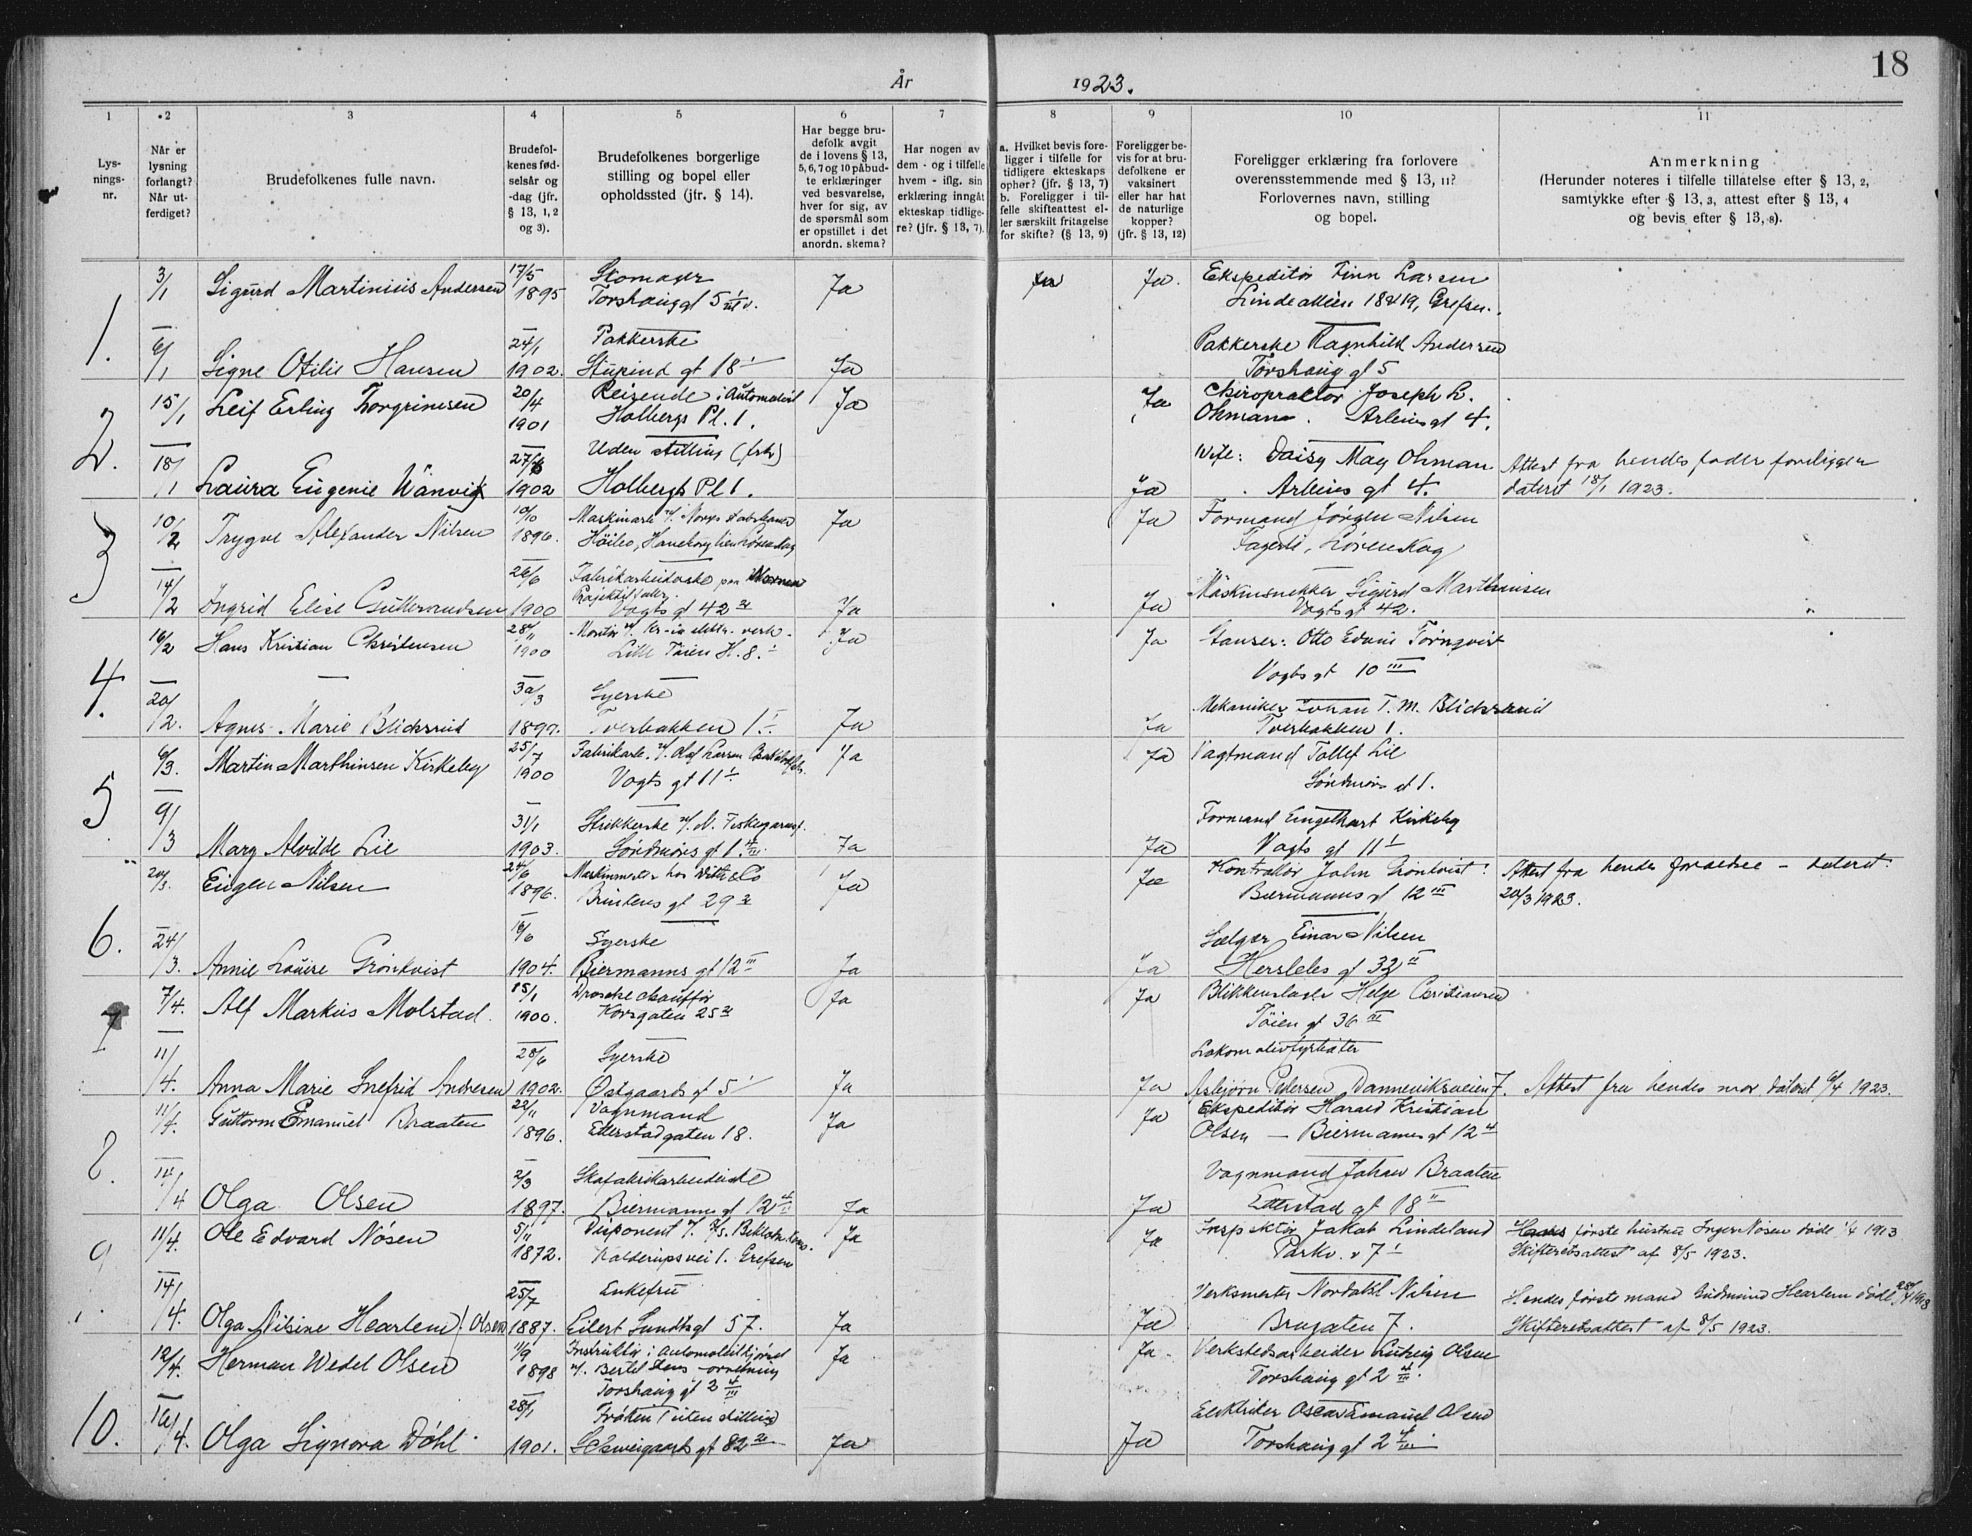 År 1923.
18
1
2
3
4
5
6
7
8
9
10
11
Lys-
nings-
nr.
Når er
lysning
forlangt?
Når ut-
ferdiget?
Brudefolkenes fulle navn.
Brudefol-
kenes fød-
selsår og
-dag (jfr.
§ 13, 1, 2
og 3).
Brudefolkenes borgerlige
stilling og bopel eller
opholdssted (jfr. § 14).
Har begge bru-
defolk avgit
de i lovens § 13,
5, 6, 7 og 10 påbud-
te erklæringer
ved besvarelse,
hver for sig, av
de spørsmål som
er opstillet i det
anordn. skema?
Har nogen av
dem - og i tilfelle
hvem - iflg. sin
erklæring inngåt
ekteskap tidlige-
re? (jfr. § 13, 7).
a. Hvilket bevis fore-
ligger i tilfelle for
tidligere ekteskaps
ophør? (jfr. § 13, 7)
b. Foreligger i til-
felle skifteattest el-
ler særskilt fritagelse
for skifte? (§ 13, 9)
Foreligger be-
vis for at bru-
defolkene er
vaksinert
eller har hat
de naturlige
kopper?
(jfr. § 13, 12)
Foreligger erklæring fra forlovere
overensstemmende med § 13, 11?
Forlovernes navn, stilling
og bopel.
Anmerkning
(Herunder noteres i tilfelle tillatelse efter § 13, 2,
samtykke efter § 13, 3, attest efter § 13, 4
og bevis efter § 13, 8).
1. 3/1 Sigurd Martinius Andersen 17/5 1895 Skomager Ja Ja. Ekspeditør Finn Larsen
Torshaug gt 5 Lindealleen 18 19, Grefsen.
6/1 Signe Otilie Hansen 24/1 1902. Pakkerske Ja Pakkerske Ragnhild Andersen
Stupind gt 18 Torshaug gt 5
2. 15/1 Leif Erling Thorgrimsen 20/4 1901 Reisende i Automobil Ja Ja Chiropraktor Joseph L.
Holbergs Pl. 1. Ohman. gt 4.
18/1 Laura Eugenie Wanvig 1902 Uden stilling Ja Wife: Daisy May Ohman Attest fra hendes fader foreligger
Holbergs Pl 1. gt 4. dateret 18/1 1923.
3 10/2 Trygve Alexander Nilsen 10/10 1896. Ja Ja Formand Jørgen Nilsen
Lørenskog
14/2 Ingrid Elise Gulbrandsen 26/6 1900 Fabrikarbeiderske Ja Ja Maskinsnekker Sigurd Marthinsen
Vogts gt 42 Vogts gt 42.
4. 16/2 Hans Kristian Christensen 28/11 1900 Montør Ja Ja Stanser: Otto Edvin Törnqvist
Lille Tøien H. 8. Vogts gt 10 III
20/2. Agnes Marie Blichsrud 30/3 1899. Syerske Ja Ja Mekaniker Johan T. M. Blichsrud
Tverbakken 1 Tverbakken 1.
5 6/3. Martin Marthinsen Kirkeby 25/7 1900 Fabrikarb. Ja Ja Vagtmand Tollef Lie
Vogts gt 11 Søndmørs gt 1.
9/3 Mary Alvilde Lie 31/1 1903. Strikkerske Ja Ja Formand Engelhart Kirkeby
Søndmørs gt 1. Vogts gt 11
6. 20/3. Eugen Nilsen 24/6 1896. Ja Ja Kontrollør John Grönkvist Attest fra hendes forældre – dateret
gt 29 Biermanns gt 12 III 20/3 1923.
24/3. Annie Louise Grönkvist 1904. Syerske Ja Ja Sælger Einar Nilsen
Biermanns gt 12 III Herslebs gt 32 II
7 7/4. Alf Markus Molstad 15/1 1900. Drosche chauffør Ja Ja Blikkenslager Helge Christiansen
Korsgaten 25 Tøien gt 36 III
11/4. Anna Marie Snefrid Andresen 28/6 1902. Syerske Ja Ja Lokomotivfyrbøter
Østgaards gt 5 Asbjørn Pedersen Danneviksveien 7. Attest fra hendes mor dateret 6/4 1923.
8. 11/4. Guttorm Emanuel Braaten 22/11 1896. Vognmand Ja Ja Ekspeditør Harald Kristian
Etterstadgaten 18. Olsen – Biermanns gt 12
14/4 Olga Olsen 2/3 1897. Skofabrikarbeiderske Ja Ja Vognmand Johan Braaten
Biermanns gt 12 Etterstad gt 18
9. 11/4. Ole Edvard Nøsen 5/11 1872. Disponent Ja Ja Inspektør Jakob Lindeland Hans første hustru Inger Nøsen døde 1/4 1913
Kalderupsvei 1. Grefsen Parkv. 7 Skifteretsattest af 8/5 1923.
14/4. Olga Nilsine Hearlem f. Olsen 25/7 1887. Enkefru Ja Ja Verksmester Nordahl Nilsen Hendes første mand Gudmund Hearlem døde
Eilert Sundts gt 57. Brugaten 7. Skifteretsattest af 8/5 1923.
10. 12/4. Herman Wedel Olsen 1/9 1898 Instruktør i Automobilkjøring Ja Ja. Verkstedsarbeider Ludvig Olsen
Torshaug gt 2 Torshaug gt 2
16/4. Olga Signora Døhl 28/1 1901. Frøken uten stilling Ja Ja Elektriker Oscar Emanuel Olsen
Schweigaards gt 82 Torshaug gt 2